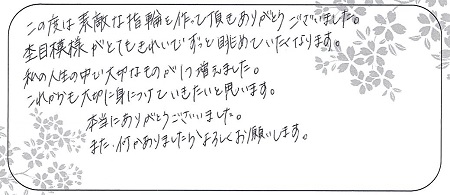 この度は素敵な指輪を作って頂きありがとうございました。
杢目模様がとてもきれいでずっと眺めていたくなります。
私の人生の中で大切なものが1つ増えました。
これからも大切に身につけていきたいと思います。
本当にありがとうございました。
また、何かありましたらよろしくお願いします。